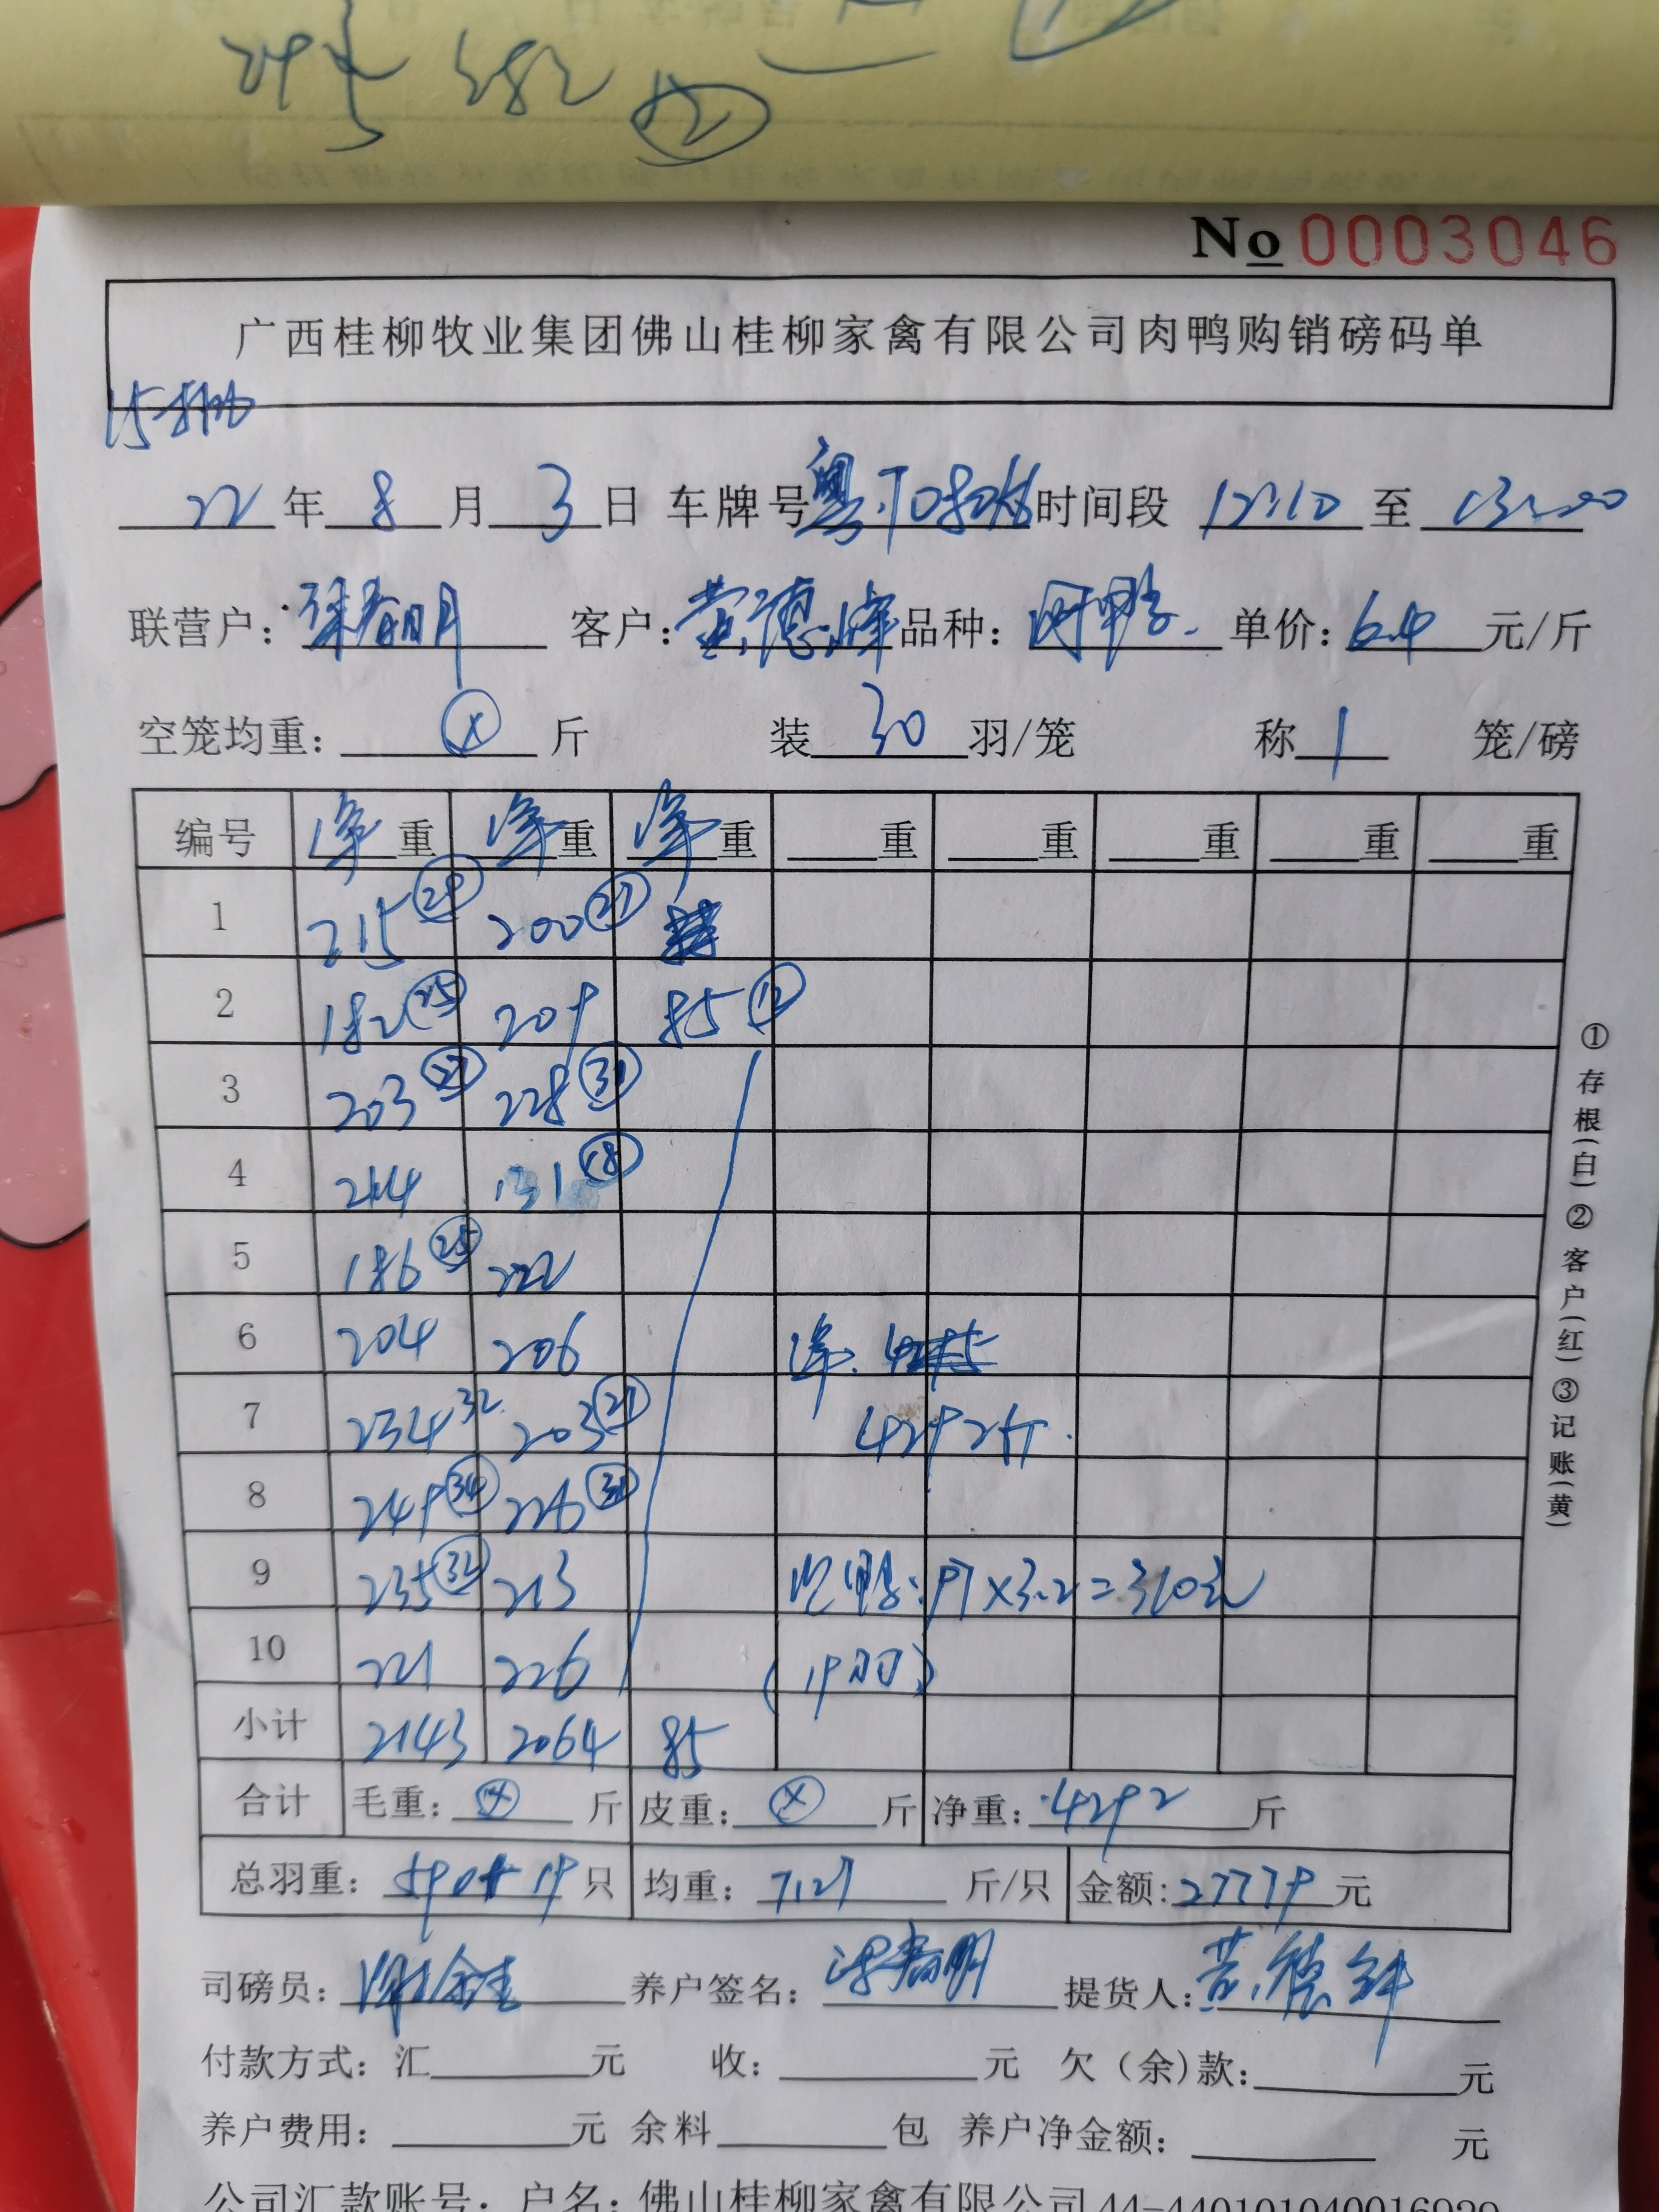 No 0003046
广西桂柳牧业集团佛山桂柳家禽有限公司肉鸭购销磅码单
22年8月3日 车牌号 时间段 12:10 至 13:00
联营户: 客户:黄德 品种: 单价:6.4 元/斤
空笼均重: ⓧ 斤 装 30 羽/笼 称 1 笼/磅
编号 净重 净重 净重 重 重 重 重 重
1 215 200 ㉗
2 182 ㉕ 209 85 ⑫
3 203 ㉗ 228 ㉛
4 214 131 ⑱
5 186 ㉕ 222
6 204 206 净.
7 234 32 203 ㉗ 4292斤.
8 249 ㉞ 226
9 235 ㉜ 213 鸭: 97×3.2=310元
10 221 226 (19羽)
小计 2143 2064 85
合计 毛重: ⓧ 斤 皮重: ⓧ 斤 净重: 4292 斤
总羽重: 590+19 只 均重: 7.27 斤/只 金额: 27779 元
司磅员: 养户签名: 梁春明 提货人: 黄德
付款方式: 汇 元 收: 元 欠(余)款: 元
养户费用: 元 余料 包 养户净金额: 元
公司汇款账号: 户名: 佛山桂柳家禽有限公司 44-440101040016929
①存根(白)②客户(红)③记账(黄)